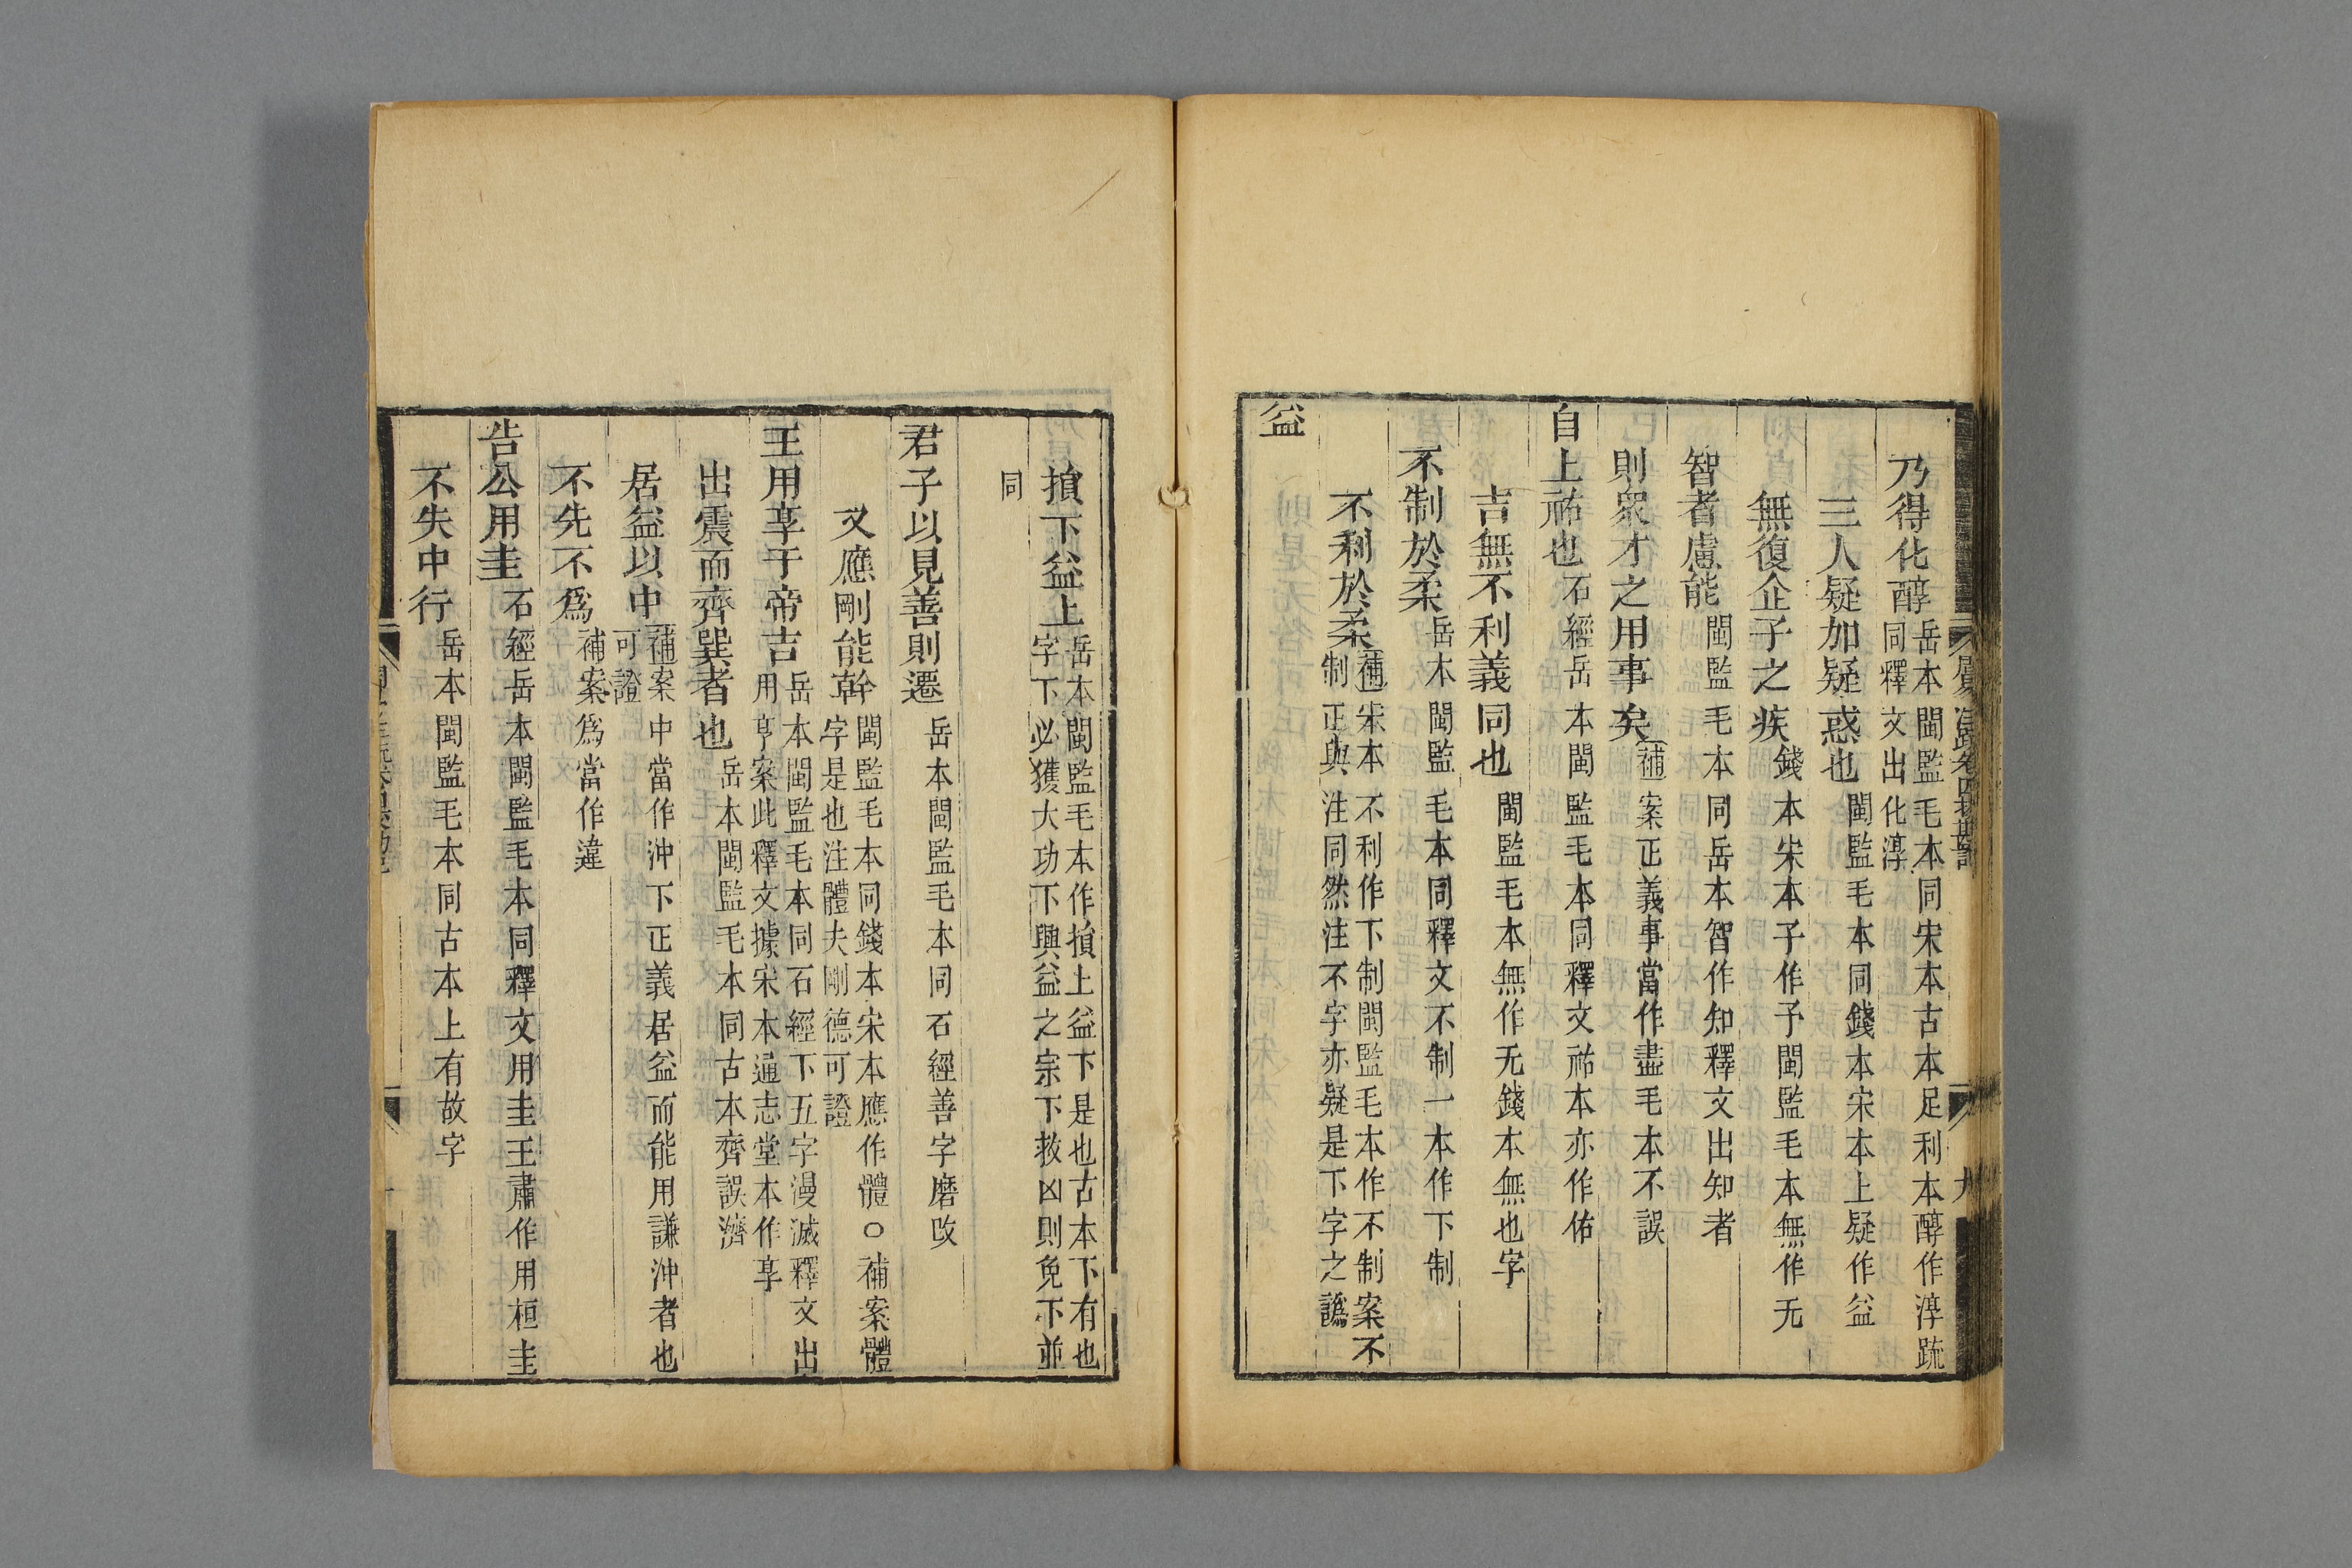 乃得化醇岳本閩監毛本同宋本古本足利本醇作淳疏
同釋文出化淳
三人疑加疑惑也閩監毛本同錢本宋本上疑作益
無復企子之疾錢本宋本子作予閩監毛本無作无
智者慮能閩監毛本同岳本智作知釋文出知者
則衆才之用事矣補案正義事當作盡毛本不誤
自上祐也石經岳本閩監毛本同釋文祐本亦作佑
吉無不利義同也閩監毛本無作无錢本無也字
不制於柔岳本閩監毛本同釋文不制一本作下制
不利於柔補宋本不利作下制閩監毛本作不制案不
制正與注同然注不字亦疑是下字之譌
益
損下益上岳本閩監毛本作損上益下是也古本下有也
字下必獲大功下興益之宗下救凶則免下並
同
君子以見善則遷岳本閩監毛本同石經善字磨改
又應剛能幹閩監毛本同錢本宋本應作體○補案體
字是也注體夫剛德可證
王用享于帝吉岳本閩監毛本同石經下五字漫滅釋文出
用亨案此釋文據宋本通志堂本作享
出震而齊巽者也岳本閩監毛本同古本齊誤濟
居益以中補案中當作沖下正義居益而能用謙沖者也
可證
不先不爲補案爲當作違
告公用圭石經岳本閩監毛本同釋文用圭王肅作用桓圭
不失中行岳本閩監毛本同古本上有故字